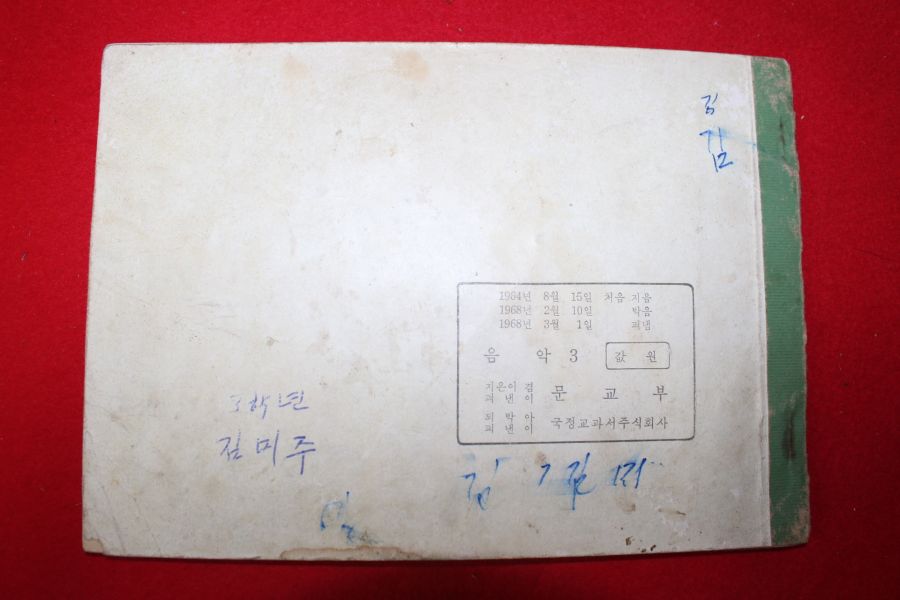 김
김
1964년 8월 15일 처음 지음
1968년 2월 10일 박음
1968년 3월 1일 펴냄
음 악 3 값 원
지은이 겸
펴 낸 이 문 교 부
되 박 아
펴 낸 이 국정교과서주식회사
3학년
김미주
김 김 미